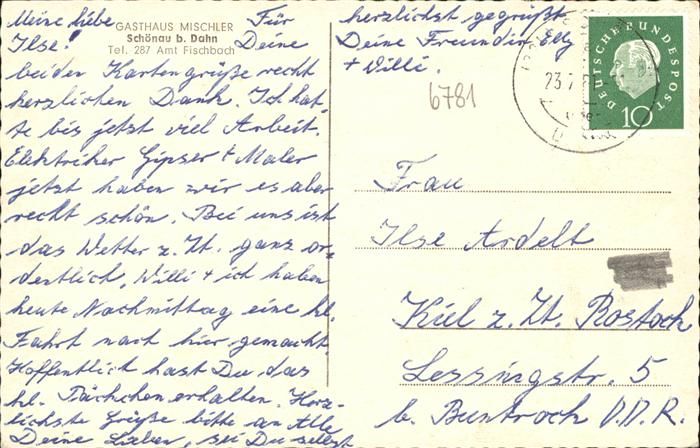 GASTHAUS MISCHLER
Schönau b. Dahn
Tel. 287 Amt Fischbach
Meine liebe Ilse! Für Deine
beiden Kartengrüße recht
herzlichen Dank. Ich hat-
te bis jetzt viel Arbeit.
Elektriker Gipser + Maler
jetzt haben wir es aber
recht schön. Bei uns ist
das Wetter z. Zt. ganz or-
dentlich, Willi + ich haben
heute Nachmittag eine kl.
Fahrt nach hier gemacht.
Hoffentlich hast Du das
kl. Päckchen erhalten. Herz-
lichste Grüße bitte an Alle
Deine Lieben, sei Du selbst
herzlichst gegrüßt
Deine Freundin Elly
+ Willi.
6781
23.7
DEUTSCHE BUNDESPOST
10
Frau
Ilse Ardelt
Kiel z. Zt. Rostock
Lessingstr. 5
b. Buntrock D.D.R.